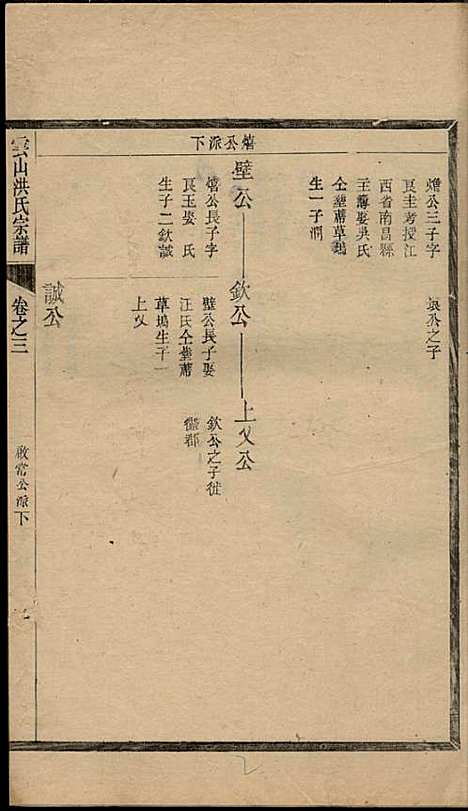 燴公三子字
艮圭考授江
西省南昌縣
主薄娶吳氏
仝塟蔣草塢
生一子潤
奂公之子
熺公派下
璧公
熺公長子字
艮玉娶 氏
生子二欽誠
欽公
璧公長子娶
汪氏仝塟蔣
草塢生子一
上乂
上乂公
欽公之子徙
徽郡
誠公
雲山洪氏宗譜
卷之三
啟常公派下